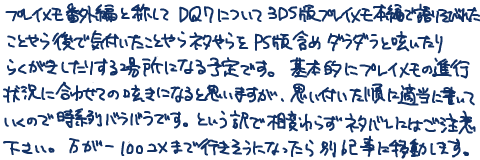 プレイメモ番外編と称して DQ7について3DS版プレイメモ本編で語りそびれた
ことやら後で気付いたことやらネタやらを PS版含めダラダラと呟いたり
らくがきしたりする場所になる予定です。基本的にプレイメモの進行
状況に合わせての呟きになると思いますが、思い付いた順に適当に書いて
いくので時系列バラバラです。という訳で相変わらずネタバレにはご注意
下さい。万が一100コメまで行きそうになったら別記事に移動します。